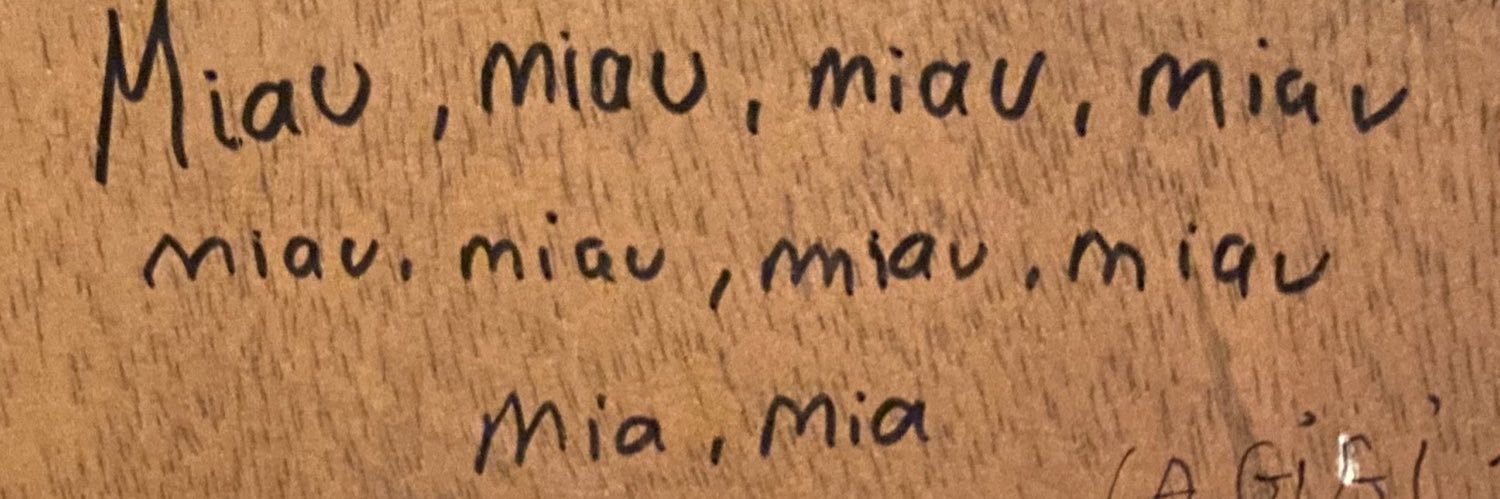 Miau, miau, miau, miau
miau. miau, miau. miau
Mia, Mia